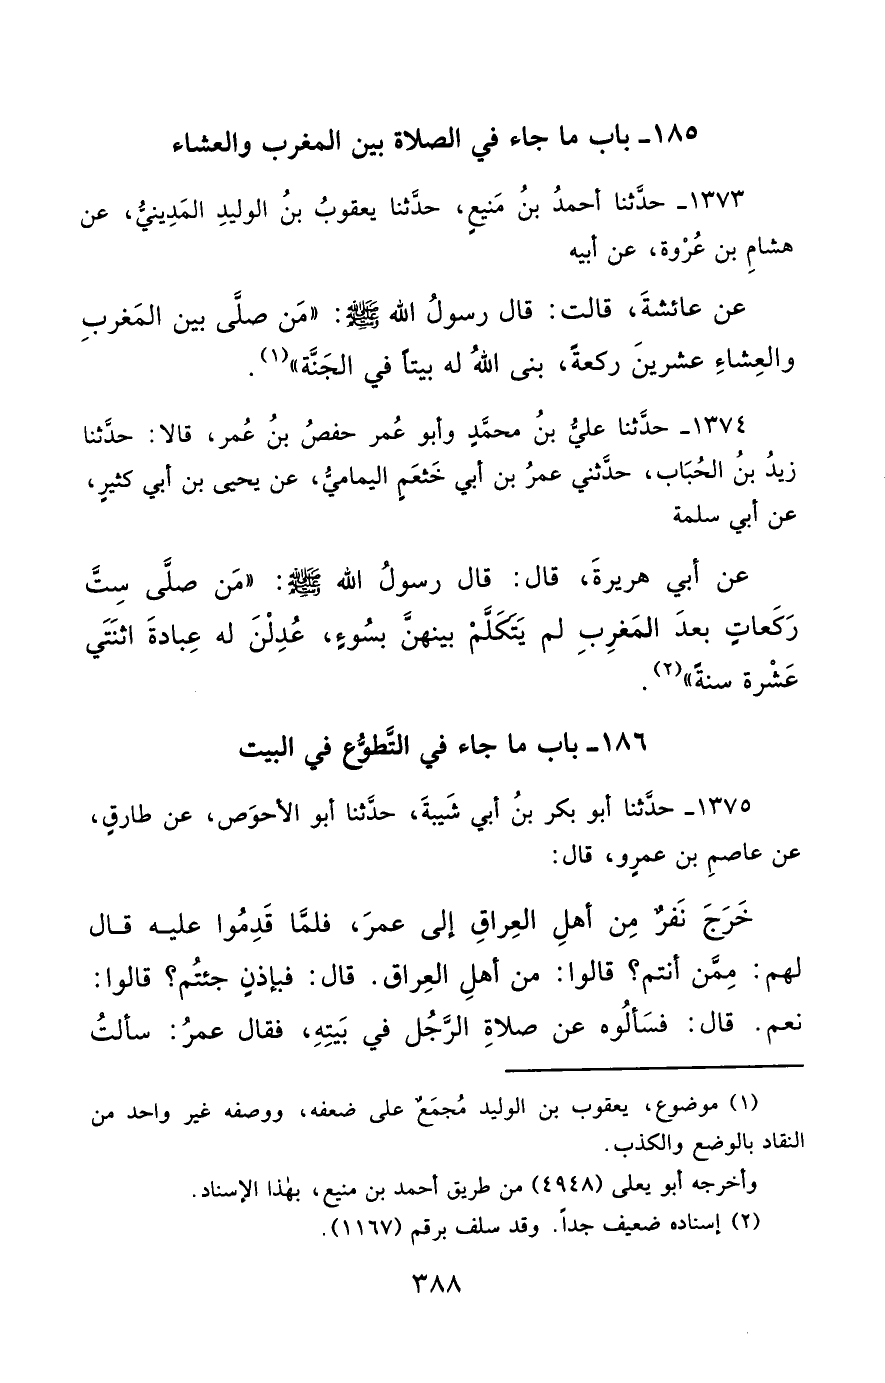 ١٨٥ـ باب ما جاء في الصلاة بين المغرب والعشاء
١٣٧٣ـ حدَّثنا أحمدُ بنُ مَنيعٍ، حدَّثنا يعقوبُ بنُ الوليدِ المَدِينيُّ، عن
هشامِ بن عُرْوة، عن أبيه
عن عائشةَ، قالت: قال رسولُ الله ﷺ: «مَن صلَّى بين المَغربِ
والعِشاءِ عشرينَ ركعةً، بنى اللهُ له بيتاً في الجَنَّة»(١).
١٣٧٤ـ حدَّثنا عليُّ بنُ محمَّدٍ وأبو عُمر حفصُ بنُ عُمر، قالا: حدَّثنا
زيدُ بنُ الحُبَاب، حدَّثني عمرُ بن أبي خَثعَمٍ اليماميُّ، عن يحيى بن أبي كثيرٍ،
عن أبي سلمة
عن أبي هريرةَ، قال: قال رسولُ الله ﷺ: «مَن صلَّى سِتَّ
رَكَعاتٍ بعدَ المَغرِبِ لم يَتَكَلَّمْ بينهنَّ بسُوءٍ، عُدِلْنَ له عِبادةَ اثنَتَي
عَشْرة سنةً»(٢).
١٨٦ـ باب ما جاء في التَّطوُّع في البيت
١٣٧٥ـ حدَّثنا أبو بكر بنُ أبي شَيبةَ، حدَّثنا أبو الأحوَص، عن طارقٍ،
عن عاصمِ بن عمرٍو، قال:
خَرَجَ نَفرٌ مِن أهلِ العِراقِ إلى عمرَ، فلمَّا قَدِمُوا عليه قال
لهم: مِمَّن أنتم؟ قالوا: من أهلِ العِراق. قال: فبإذنٍ جئتُم؟ قالوا:
نعم. قال: فسَألُوه عن صلاةِ الرَّجُل في بَيتِهِ، فقال عمرُ: سألتُ
(١) موضوع، يعقوب بن الوليد مُجمَعٌ على ضعفه، ووصفه غير واحد من
النقاد بالوضع والكذب.
وأخرجه أبو يعلى (٤٩٤٨) من طريق أحمد بن منيع، بهٰذا الإسناد.
(٢) إسناده ضعيف جداً. وقد سلف برقم (١١٦٧).
٣٨٨